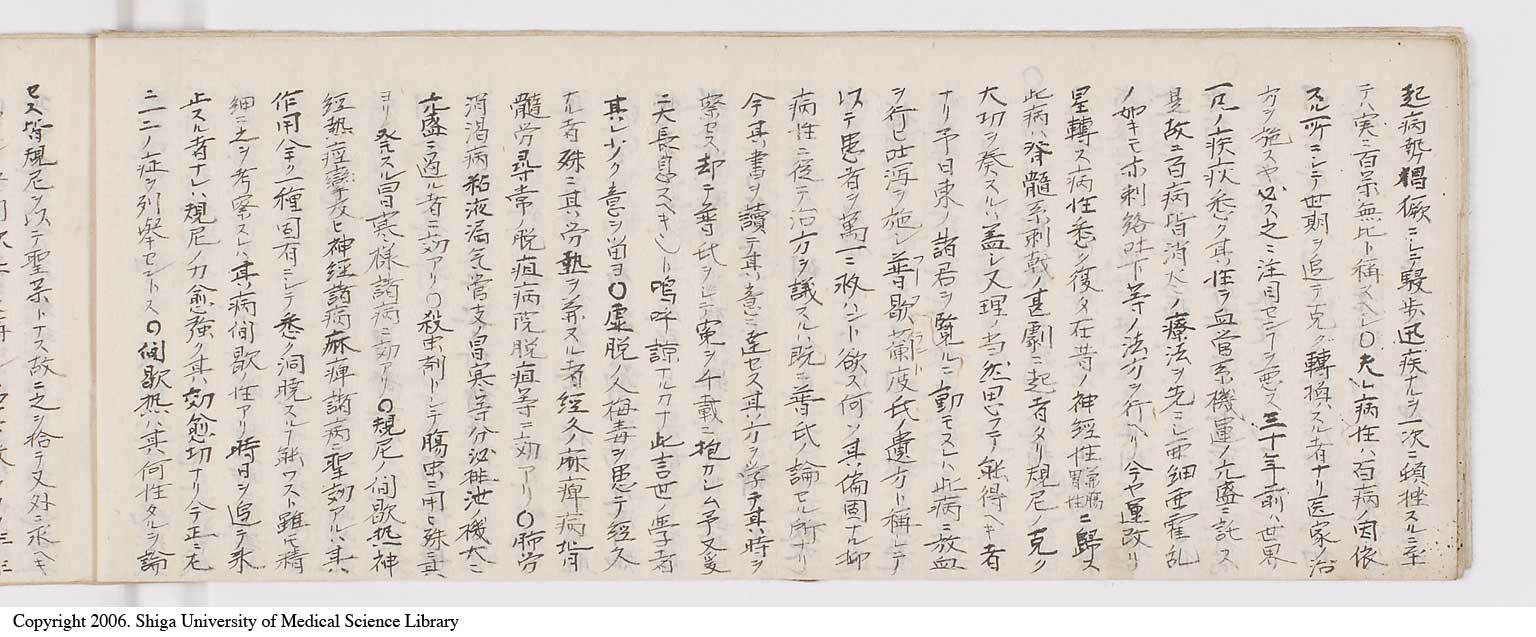 起病勢猖獗ニシテ駸歩迅疾ナルヲ一次ニ頓挫スルニ至
テハ実ニ百杲無比ト称スヘシ〇夫レ病性ハ百病ノ因依
スル所ニシテ世期ヲ追テ克ク轉換スル者ナリ医家ノ治
方ヲ施スヤ必ス之ニ注目センヿヲ要ス三十年前ハ世界
一凡ノ疾疢悉ク其性ヲ血管系機運ノ亢盛ニ託ス
是故ニ百病皆消火ノ療法ヲ先ニシ亜細亜霍乱
ノ如キモ亦刺絡吐下等ノ法方ヲ行ヘリ今ヤ運改リ
星轉ス病性悉ク復タ在昔ノ神経性胃性ニ歸ス
此病ハ脊髄系刺戟ノ甚劇ニ起者タリ規尼ノ克ク
大切ヲ奏スルハ蓋シ又理ノ当然思フテ能得ヘキ者
ナリ予日東ノ諸君ヲ覧ルニ動モスレハ此病ニ放血
ヲ行ヒ吐瀉ヲ施シ普歇蘭度氏ノ遺方ト称シテ
以テ患者ヲ萬一ニ救ハント欲ス何ソ其偏固ナル抑
病性ニ従テ治方ヲ議スルハ既ニ普氏ノ論セル所ナリ
今其書ヲ讀テ其意ニ達セス其方ヲ学テ其時ヲ
察セス却テ普氏ヲシテ寃ヲ千載ニ抱カシム予又爰
ニ大長息スヘキ嗚呼諒ナルカナ此言世ノ学者
其レ少ク意ヲ留ヨ〇虚脱ノ人梅毒ヲ患テ経久
ナル者殊ニ其労熱ヲ兼スル者経久ノ麻痺病背
髄労尋常ノ脱疽病院脱疽等ニ効アリ〇肺労
消渇病粘液漏気管支ノ冒寒等分泌排泄機大ニ
亢盛ニ過ル者ニ効アリ〇殺虫剤トシテ腸虫ニ用ヒ殊ニ其
ヨリ発スル冒寒様諸病ニ効アリ〇規尼ノ間歇熱神
経熱痙攣及ヒ神経諸病麻痺諸病聖効アルハ其
作用全ク一種固有ニシテ悉ク洞暁スルヿ能ワスト雖モ精
細ニ之ヲ考察スレハ其病間歇性アリ時日ヲ追テ来
止スル者ナレハ規尼ノ力愈強ク其ハ効愈切ナリ今正ニ左
ニ一二ノ症ヲ列挙セントス〇間歇熱ハ其何性タルヲ論
セス皆規尼ヲ以テ聖杲トナス故ニ之ヲ捨テ又外ニ求ヘキ
Copyright 2006. Shiga University of Medical Science Library